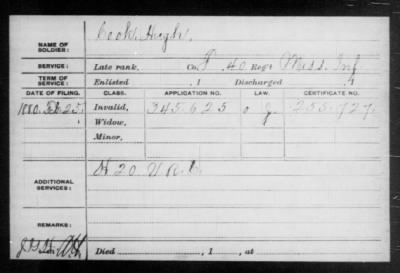 Cook, Hugh.
NAME OF SOLDIER:
SERVICE: Late rank, Co. 40 Reg't Miss. Inf
TERM OF SERVICE: Enlisted , 1 Discharged , 1
DATE OF FILING. CLASS. APPLICATION NO. LAW. CERTIFICATE NO.
1880. Feb 25. Invalid, 345.625 255.727.
Widow,
Minor,
ADDITIONAL SERVICES: 20 V.R.C.
REMARKS:
Died , 1 , at